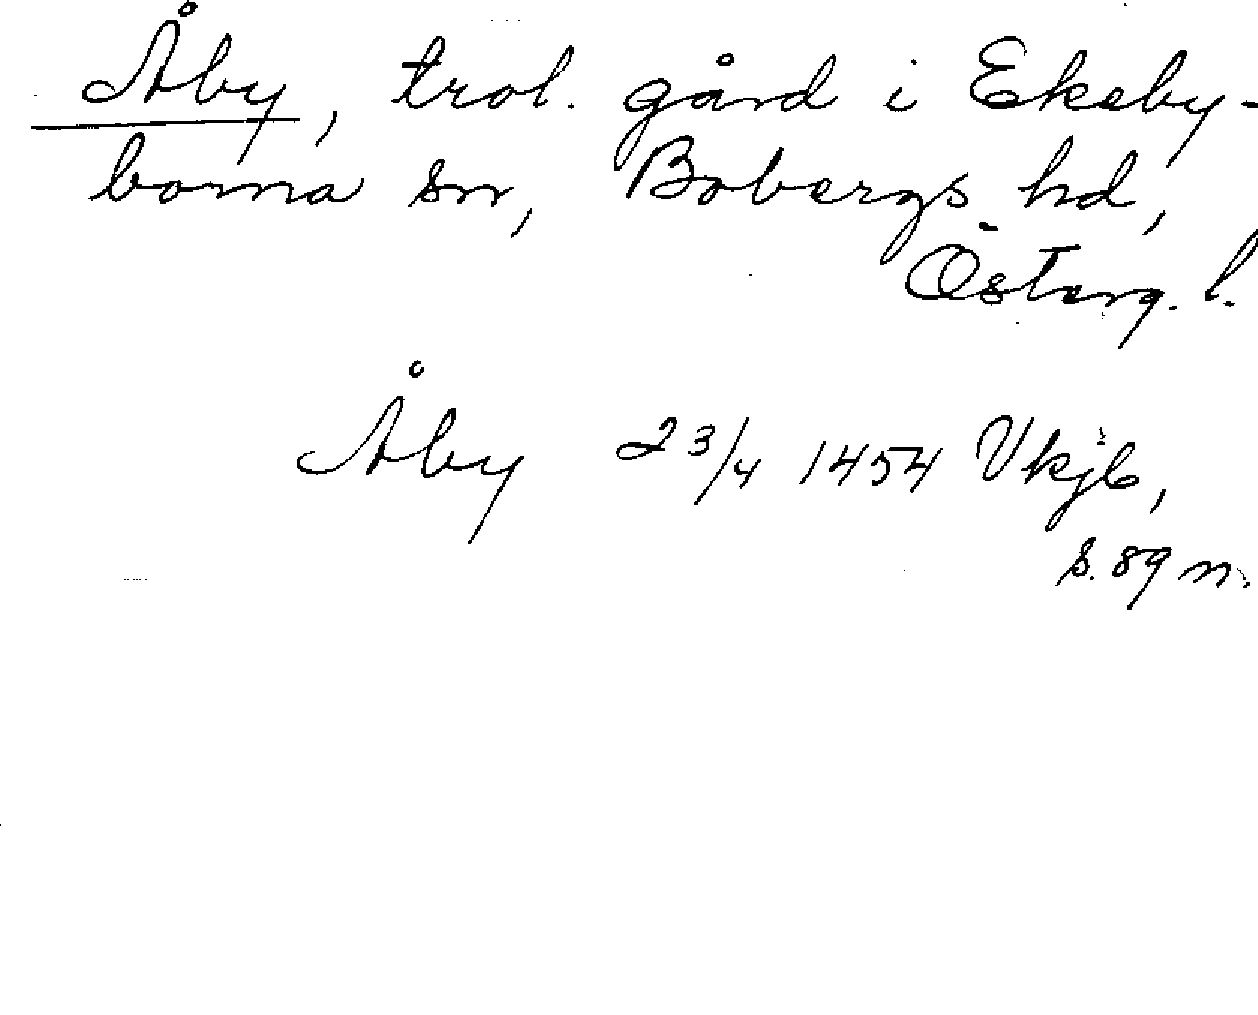 Åby, trol. gård i Ekeby-
borna sn, Bobergs hd,
Österg. l.
Åby 23/4 1454 Vkjb,
s. 89 n.